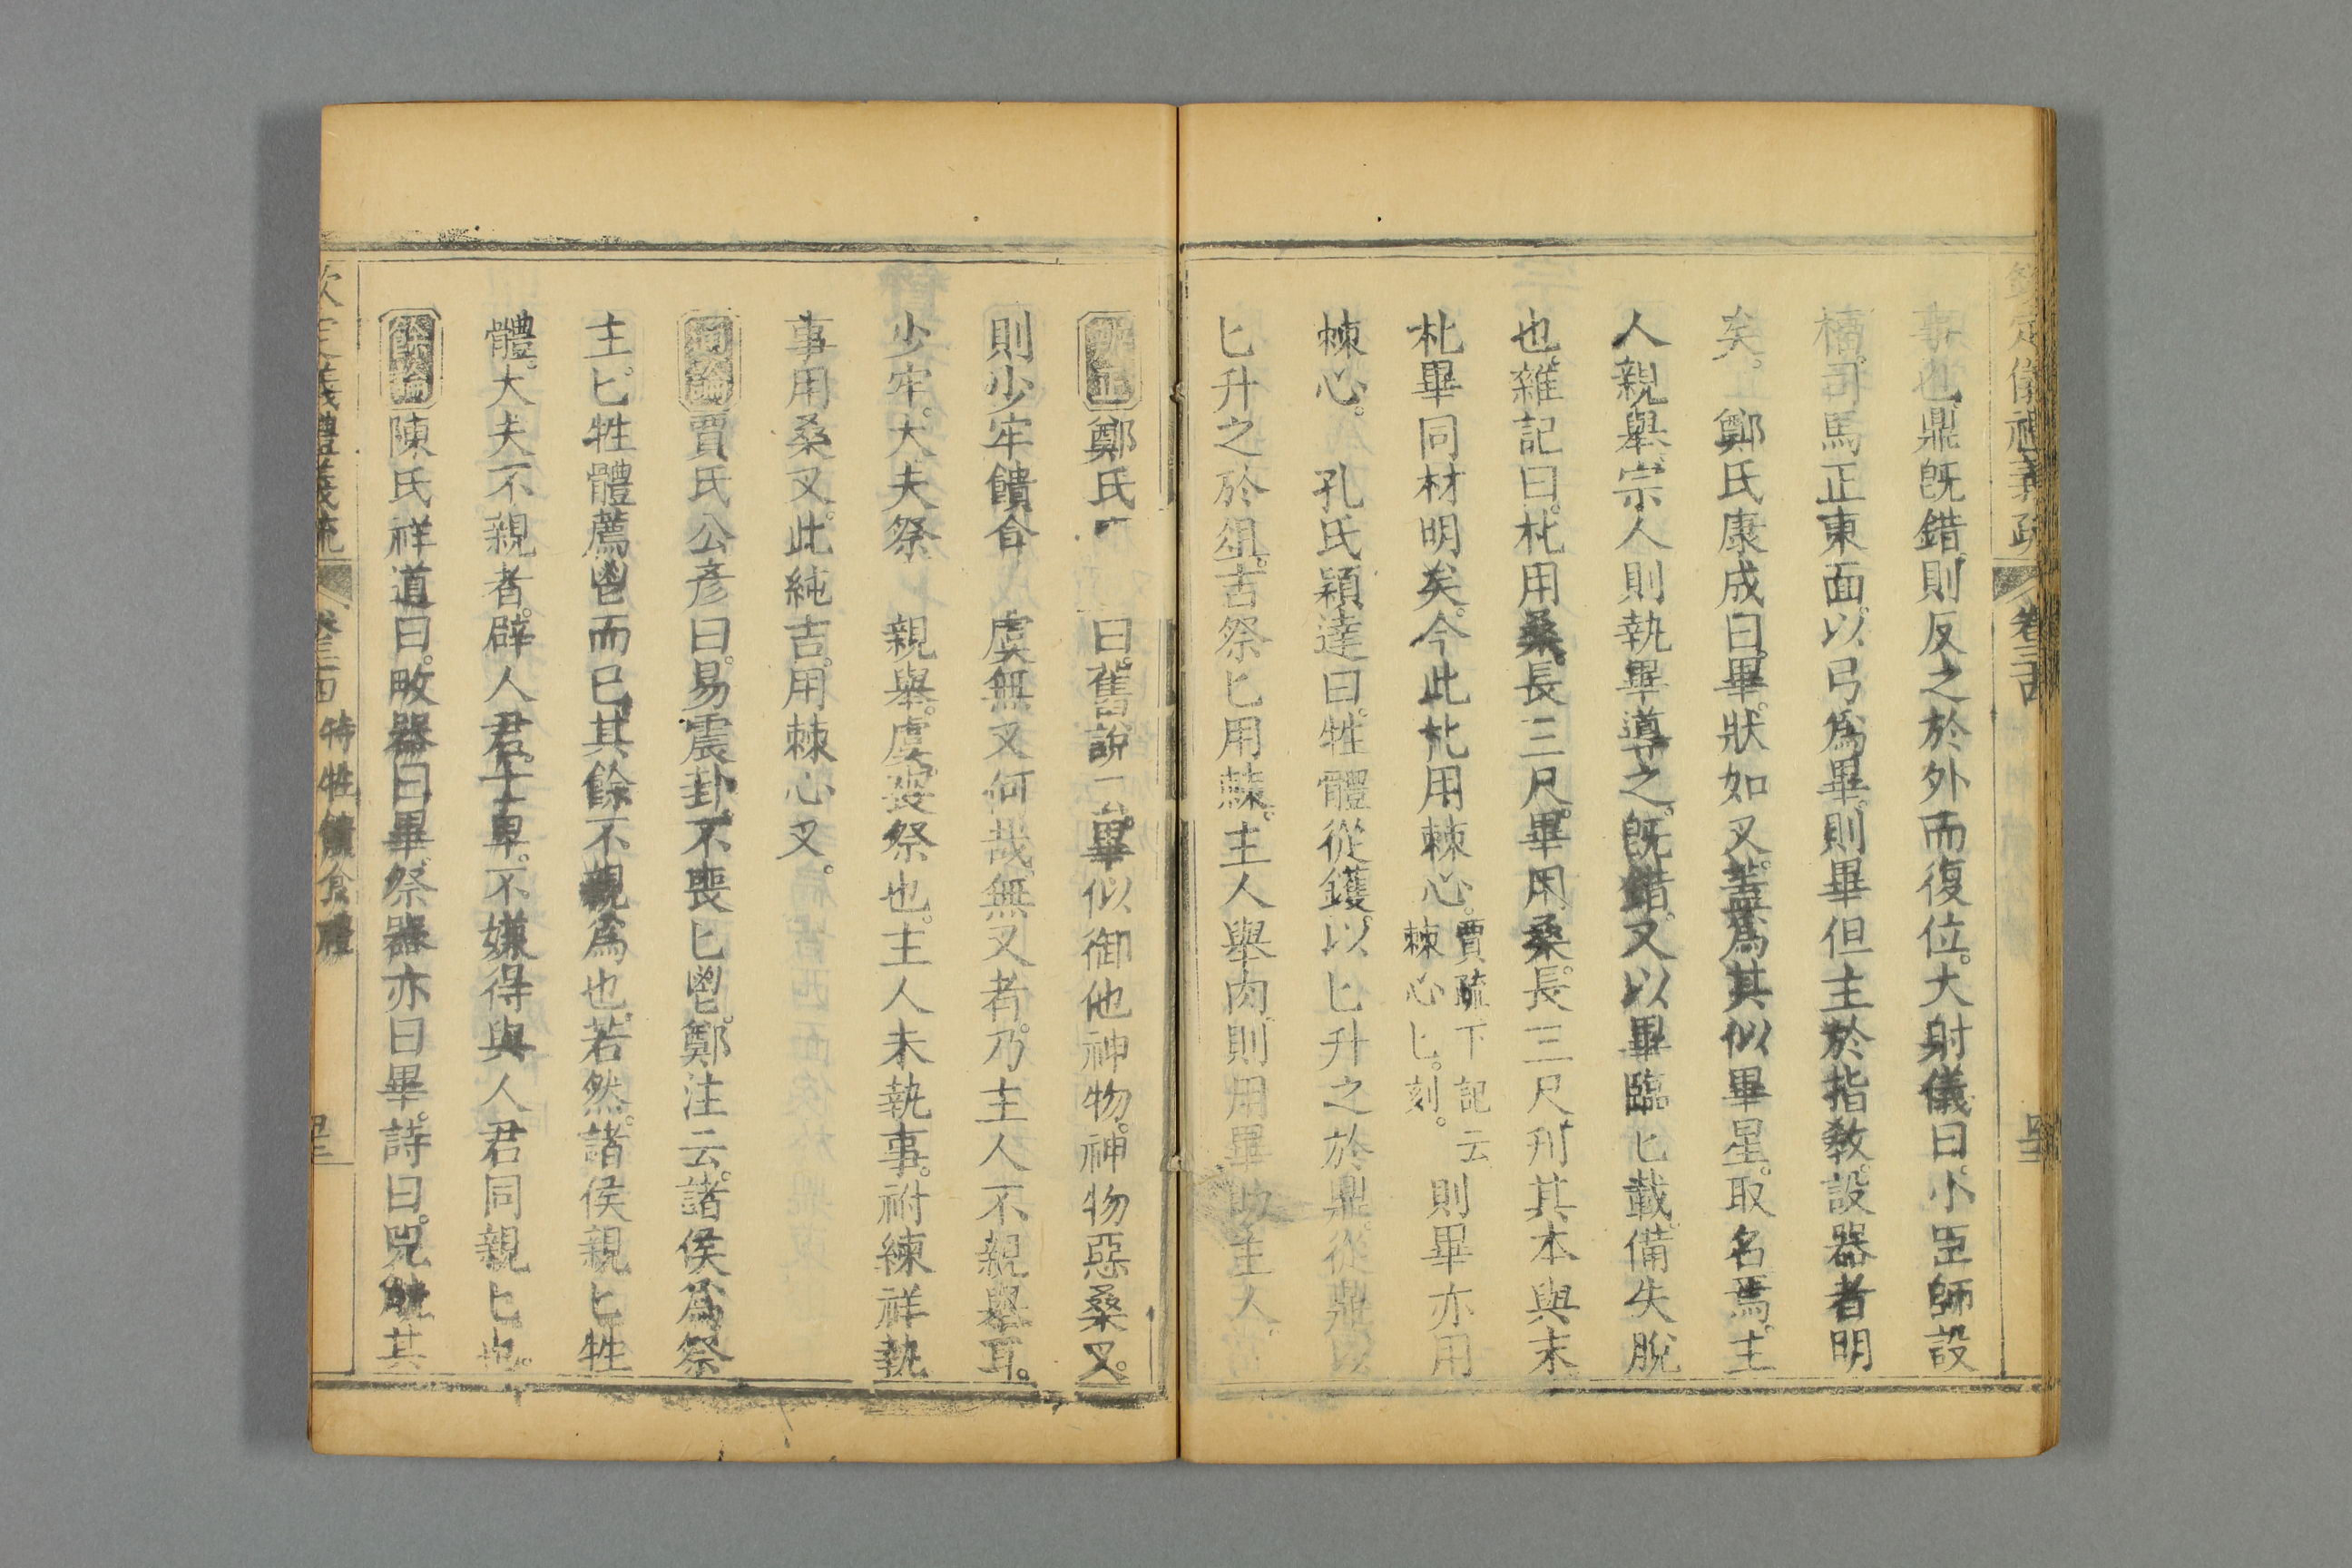 定儀禮義疏 卷三十四
事也鼎既錯則反之於外而復位。大射儀曰。小臣師設
楅。司馬正東面。以弓爲畢。則畢但主於指教。設器者明
矣。 鄭氏康成曰。畢。狀如叉。蓋爲其似畢星。取名焉。主
人親舉。宗人則執畢導之。既錯。又以畢臨匕載。備失脫
也。雜記曰。朼用桑。長三尺。畢用桑。長三尺。刊其本與末
朼畢同材明矣。今此朼用棘心。
賈疏下記云
棘心匕。刻。
則畢亦用
棘心。 孔氏穎達曰。牲體從鑊。以匕升之於鼎。從鼎以
匕升之於俎。吉祭匕用棘。主人舉肉。則用畢助主人。
正鄭氏 曰。舊說畢似御他神物。神物惡桑叉。
則少牢饋食 虞無叉何哉。無叉者。乃主人不親舉耳。
少牢。大夫祭 親舉。虞。喪祭也。主人未執事。祔練祥執
事用桑叉。此純吉。用棘心叉。
論賈氏公彥曰。易震卦。不喪匕鬯。鄭注云。諸侯爲祭
主。匕牲體薦鬯而已。其餘不親爲也。若然。諸侯親匕牲
體。大夫不親者。辟人君。士卑。不嫌得與人君同親匕也。
餘論陳氏祥道曰。畋器曰畢。祭器亦曰畢。詩曰。兕觥其
定儀禮義疏 卷三十四 特牲饋食禮